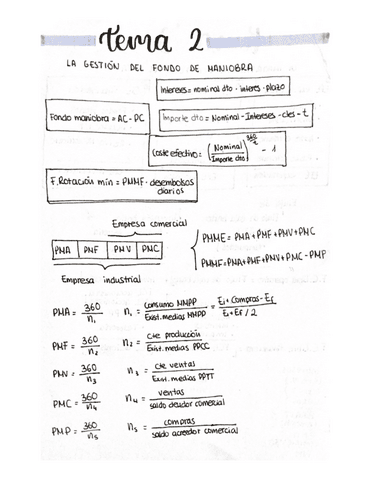 tema 2
LA GESTIÓN DEL FONDO DE MANIOBRA
Intereses = nominal dto · interes · plazo
Fondo maniobra = AC - PC
Importe dto = Nominal - Intereses - ctes - t
Coste efectivo = (Nominal / Importe dto)^(360/n) - 1
F. Rotación min = PMMF · desembolsos diarios
Empresa comercial
PMA | PMF | PMV | PMC
Empresa industrial
PMME = PMA + PMF + PMV + PMC
PMMF = PMA + PMF + PMV + PMC - PMP
PMA = 360 / n₁ n₁ = consumo MMPP / Exist. medias MMPP = Ei + Compras - Ef / Ei + Ef / 2
PMF = 360 / n₂ n₂ = cte producción / Exist. medias PPCC
PMV = 360 / n₃ n₃ = cte ventas / Exist. medias PPTT
PMC = 360 / n₄ n₄ = ventas / saldo deudor comercial
PMP = 360 / n₅ n₅ = compras / saldo acreedor comercial